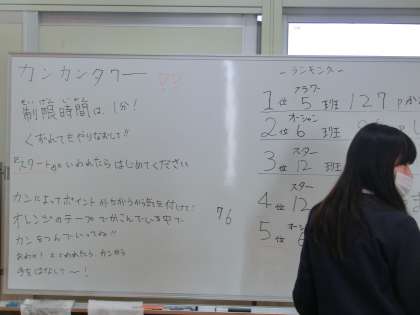 カンカンタワー
せいげんじかん
制限時間は、1分!
くずれてもやりなおし!!
"スタート"といわれたらはじめてください
カンによってポイントがちがうから気を付けて!
オレンジのテープでかこんでいる中で
カンをつんでいってね!!
おわり!といわれたら、カンから
手をはなしてー!
76
ーランキングー
フラワー
1位 5班 127
オーシャン
2位 6班
スター
3位 12班
スター
4位 12
5位